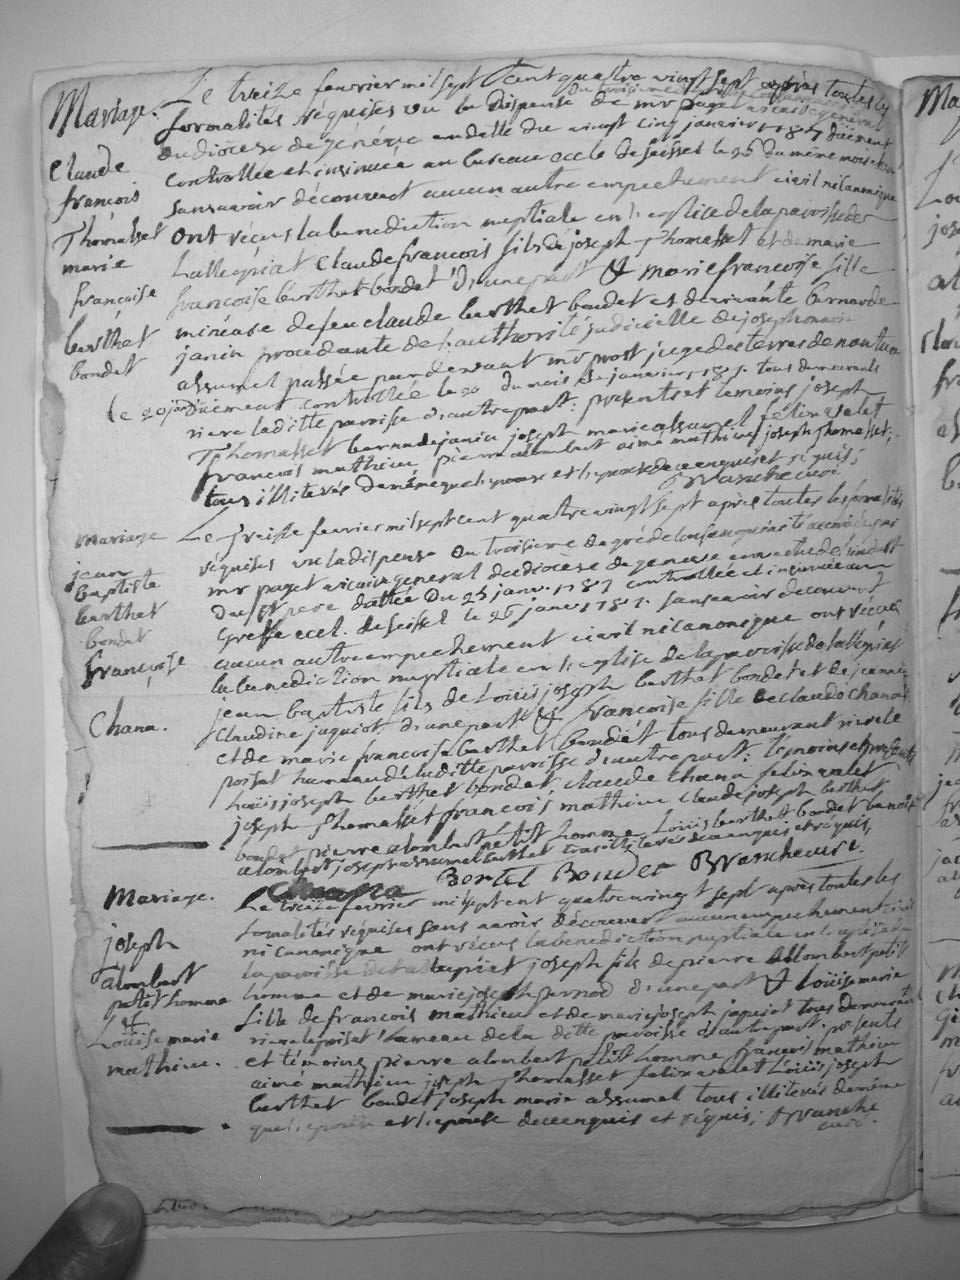 Mariage.
Claude
françois
Thomasset
marie
françoise
berthet
bondet
Le treize fevrier mil sept cent quatre vingt sept après toutes les
formalités réquises vu la dispense de mr paget vicaire général
du diocèse de genève en datte du vingt cinq janvier 1787 düement
controllée et insinuee au bureau de seissel le 26 du même mois
sans avoir découvert aucun autre empechement civil ni canonique
ont reçus la benediction nuptiale en l'eglise de la paroisse de
Lalleyriat Claude françois fils de joseph Thomasset et de marie
françoise berthet bondet d'une part & marie françoise fille
mineure de feu claude berthet bondet et de vivante bernarde
janin procedante de l'authorité judicielle de joseph marie
assumel passée par devant mr prost juge des terres de nantua
le 20 janv. düement controllée le 20 du mois de janvier 1787. tous demeurants
riere laditte paroisse d'autre part: presents et temoins joseph
Thomasset bernade janin joseph marie assumel felix valet
françois mathieu pierre alombert aimé mathieu joseph Thomasset,
tous illiterés de même que l'epoux et l'epouse de ce enquis et réquis;
Mariage
jean
baptiste
berthet
bondet
françoise
Chana.
Le treize fevrier mil sept cent quatre vingt sept après toutes les formalités
réquises vu la dispense du troisieme degré de consanguinité accordée par
mr paget vicaire general du diocèse de geneve en vertu de l'indult
du st pere dattée du 25 janv. 1787 controllée et insinuée au
Greffe eccl. de seissel le 26 janv. 1787. sans avoir decouvert
aucun autre empechement civil ni canonique ont réçus
la benediction nuptiale en l'eglise de la paroisse de lalleyriat
jean baptiste fils de Louis joseph berthet bondet et de jeanne
Claudine jaquiot d'une part & françoise fille de claude Chana
et de marie françoise berthet bondet tous demeurant riere le
poisat hameau de laditte paroisse d'autre part: temoins et presents
Louis joseph berthet bondet claude chana felix valet
joseph Thomasset françois mathieu claude joseph berthet
bondet pierre alombert petit homme Louis berthet bondet benoit
alombert joseph assumel berthet tous illiterés de ce enquis et réquis,
Chana Bertet Bondet
Mariage.
joseph
alombert
petit homme
&
Louise marie
mathieu.
Le treize fevrier mil sept cent quatre vingt sept après toutes les
formalités réquises sans avoir découvert aucun empechement civil
ni canonique ont réçus la benediction nuptiale en l'eglise de
la paroisse de lalleyriat joseph fils de pierre allombert petit
homme et de marie joseph pernod d'une part & Louise marie
fille de françois mathieu et de marie joseph jaquiot tous demeurants
riere le poisat hameau de la ditte paroisse d'autre part. presents
et témoins pierre alombert petit homme françois mathieu
aimé mathieu joseph Thomasset felix valet Louis joseph
berthet bondet joseph marie assumel tous illiterés de même
que l'epoux et l'epouse de ce enquis et réquis;
curé.